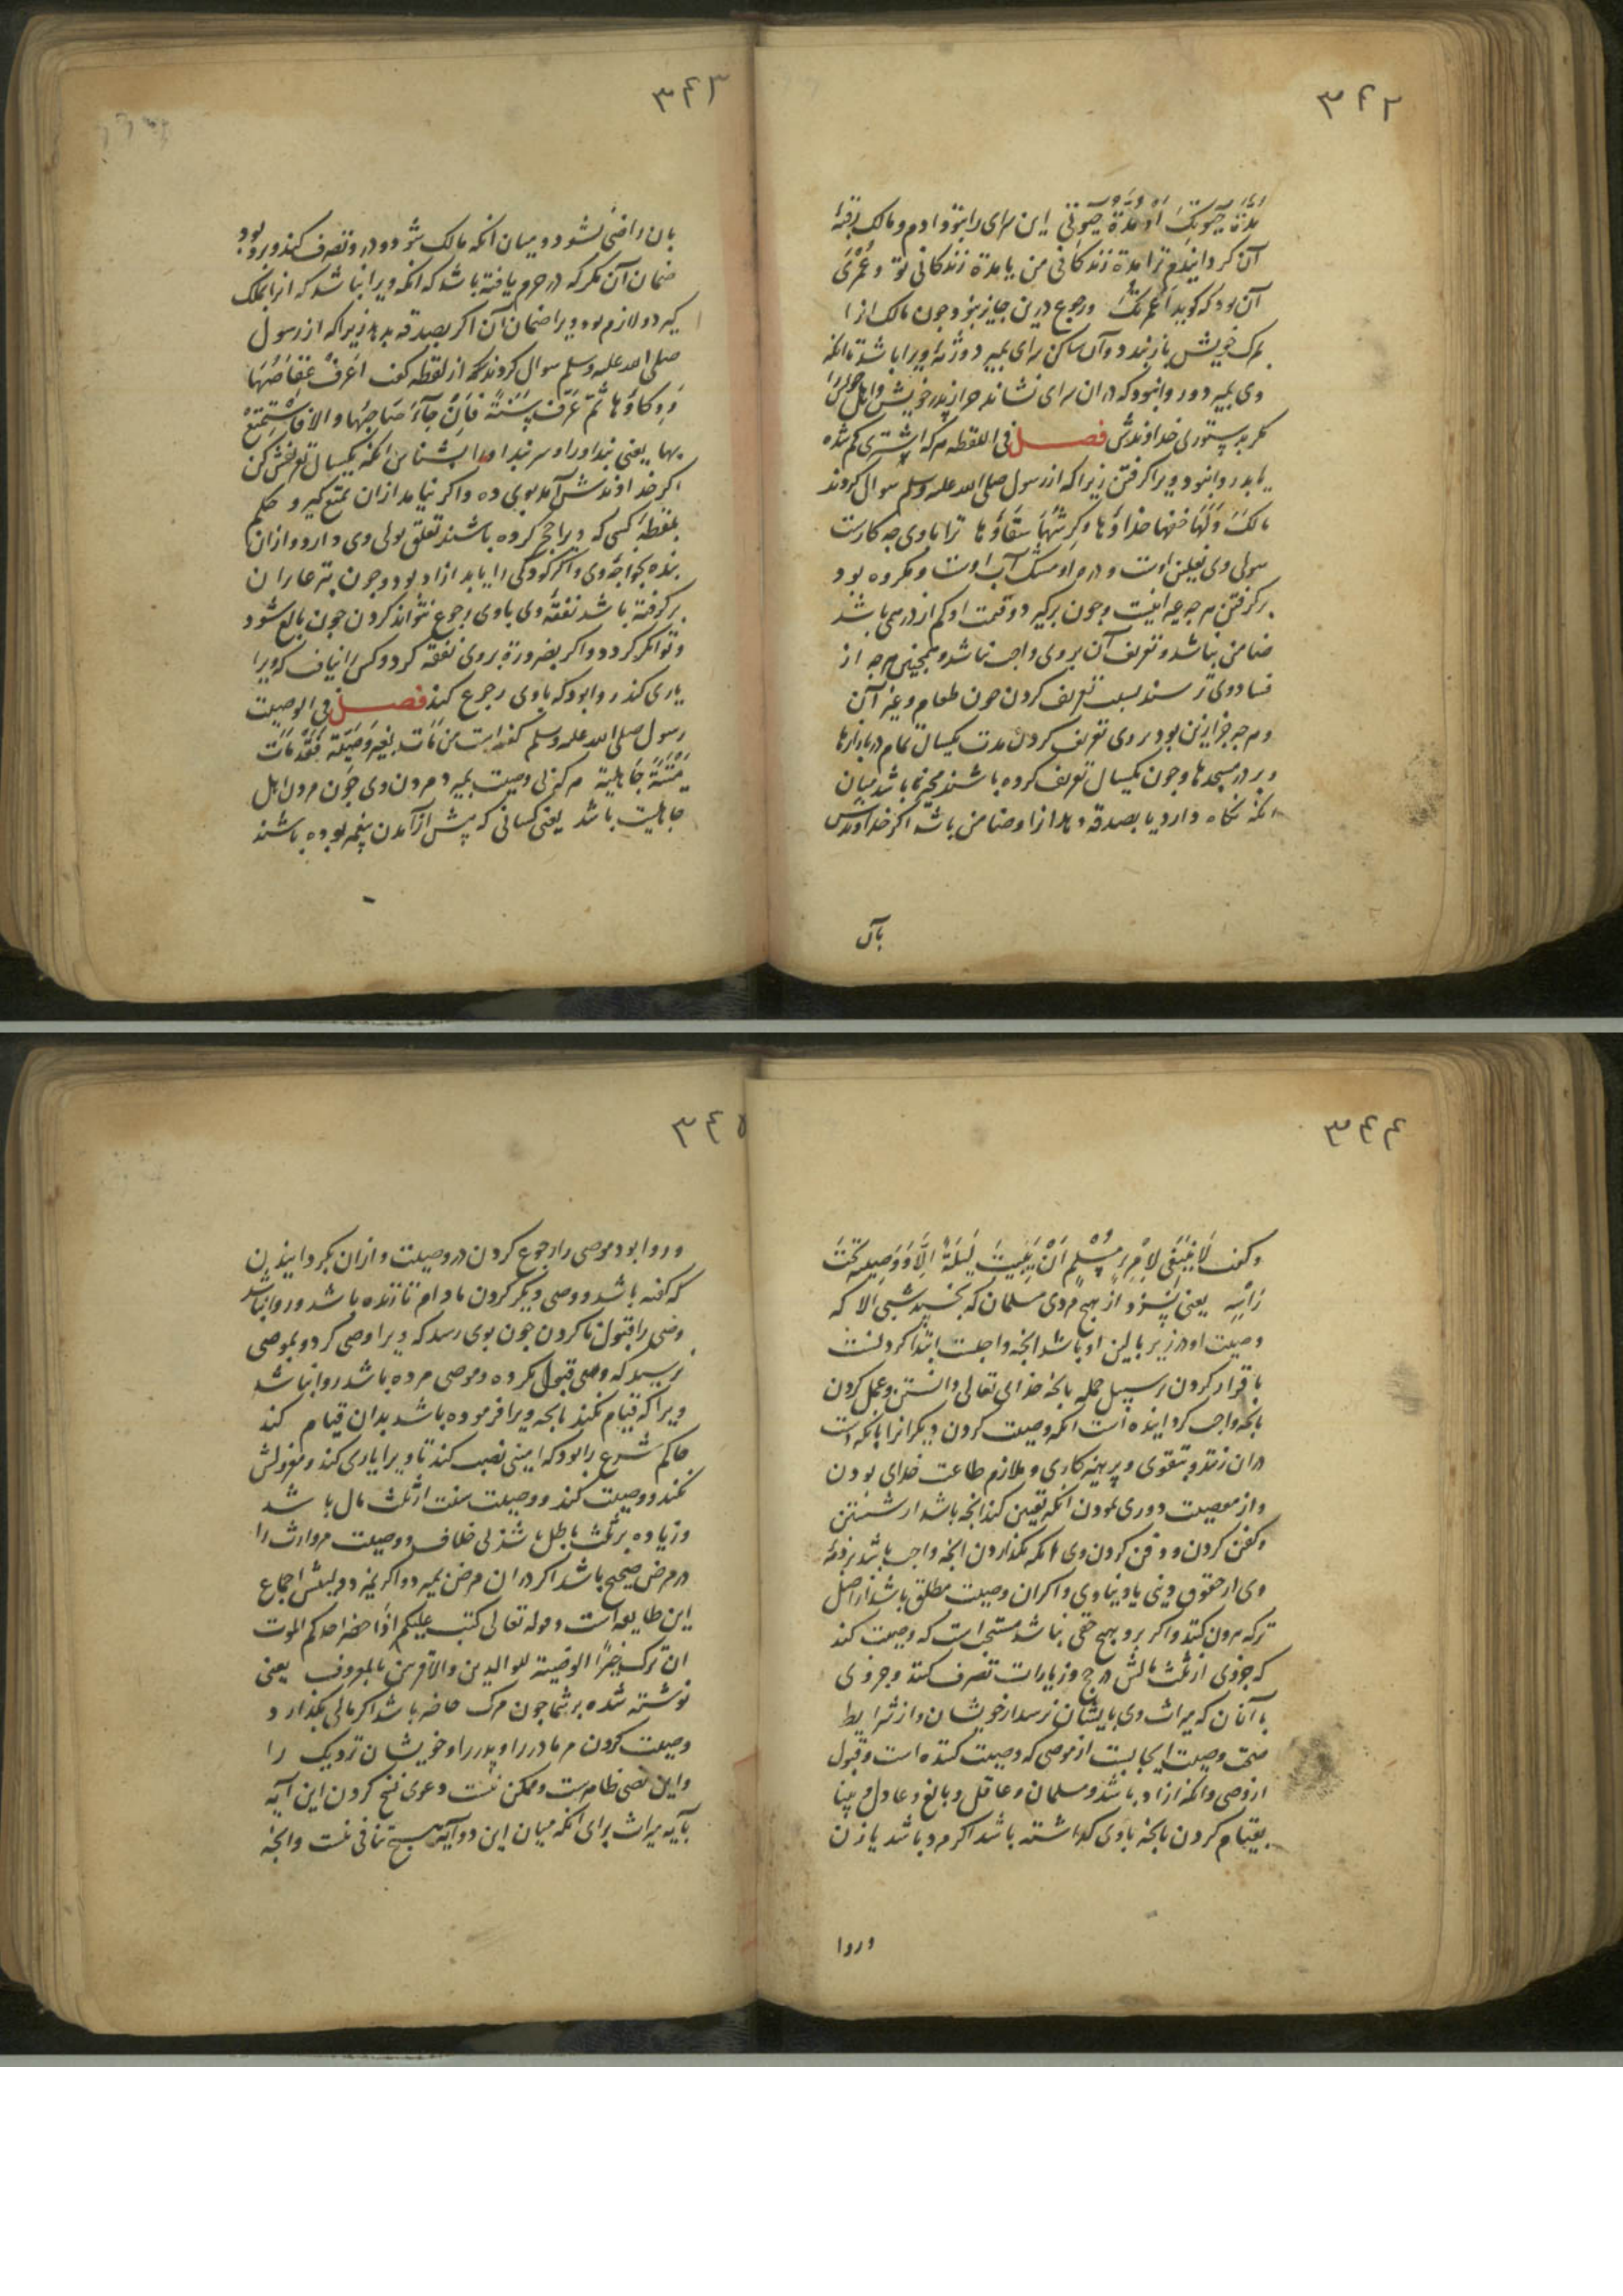 ٣٤٢
مدّة حیوتک او مدّة حیوتی این سرای را بتو دادم و مالک رقبهٔ
آن کردانیدم ترا مدة زندکانی من یا مدة زندکانی تو و عُمْری
آن بود که کوید اعمرتک و رجوع درین جایز نبود چون مالک انرا
بمرک خویش باز بندد و آن ساکن سرای بمیرد ورثهٔ ویرا باشد تا انکه
وی بمیرد و روا نبود که در ان سرای نشاند جز از پدر خویش و اهل
مکر بدستوری خداوندش فصل فی اللقطه هرکه اشتری کم شده
یابد روا نبود ویرا کرفتن زیرا که از رسول صلی الله علیه وسلم سوال کردند
مالک و لها خفها حذاؤها و کرشها سقاؤها ترا باوی چه کارست
سولی وی نعلین اوست و درم او مشک آب اوست و مکروه بود
برکرفتن هرچه عه انیست و چون برکیرد و قیمت او کم از درهمی باشد
ضامن نباشد و تعریف آن بر وی واجب نباشد و همچنین هرچه از
فسادوی ترسند بسبب تعریف کردن چون طعام و غیر آن
و هرچه جز ازین بود بروی تعریف کردن مدت یکسال تمام در بازارها
و بر در مسجدها و چون یکسال تعریف کرده باشند مخیر باشد میان
انکه نکاه دارد یا بصدقه دهد ازا و ضامن باشد اکر خداوندش
بآن
٣٤٣
بان راضی نشود و میان انکه مالک شود و درو تصرف کند و برو بود
ضمان آن مکر که در حرم یافته باشد که انکه ویرا نباشد که انرا بملک
کیرد و لازم بود ویرا ضمان آن اکر بصدقه بدهد زیرا که از رسول
صلی الله علیه وسلم سوال کردند که از لقطه کفت اعرف عفاصها
و وکاؤها ثم عرّف سنةً فان جاء صاحبها و الا فاستمتع
بها یعنی بنداورا و سربند اورا بشناس انکه یکسال تعریفش کن
اکر خداوندش آمد بوی ده و اکر نیامد ازان تمتع کیر و حکم
لقطهٔ کسی که ویرا جح کرده باشند تعلق بولی وی دارد و ازان
بنده بخواجهٔ وی و اکر کودکی را یابد ازاد بود و چون بتر عاران
برکرفته باشد نفقهٔ وی باوی رجوع نتواند کردن چون بالغ شود
و توانکر کردد و اکر بضرورة بروی نفقه کرد و کس را نیافت که ویرا
یاری کند روا بود که باوی رجوع کند فصل فی الوصیت
رسول صلی الله علیه وسلم کفته است من مات بغیر وصیّة فقد مات
میتةً جاهلیة هرکه بی وصیت بمیرد مردن وی چون مردن اهل
جاهلیت باشد یعنی کسانی که پیش از آمدن پیغمبر بوده باشند
٣٤٤
و کفت لا ینبغی لامرء مُسْلِم اَنْ یبیت لیلة الّا و وصیته تحت
راسه یعنی نسزد از هیچ مردی مسلمان که بخسپد شبی الا که
وصیت او در زیر بالین او باشد انچه واجبست ابتدا کردنست
باقرار کردن برسبیل جمله بانچه خدای تعالی دانستن و عمل کردن
بانچه واجب کردانیده است انکه وصیت کردن دیکرانرا بانکه دست
دران زنند و بتقوی و پرهیزکاری و ملازم طاعت خدای بودن
و از معصیت دوری نمودن انکه تعیین کند انچه باشد از شستن
و کفن کردن و دفن کردن وی انکه بکذاردن انچه واجب باشد بر ذمّهٔ
وی از حقوق دینی یا دنیاوی و اکران وصیت مطلق باشد از اصل
ترکه بیرون کنند و اکر برو هیچ حقی نباشد مستحب است که وصیت کند
که جزوی از ثلث مالش در حج و زیارات تصرف کنند و جزوی
با آنان که میراث وی بایشان نرسد از خویشان و از شرایط
صحّت وصیت ایجابست از موصی که وصیت کننده است و قبول
از وصی و انکه ازاد باشد و مسلمان و عاقل و بالغ و عادل و بینا
بقیام کردن بانچه باوی کذاشته باشد اکر مرد باشد یا زن
وروا
٣٤٥
و روا بود موصی را رجوع کردن در وصیت و ازان بکردانیدن
که کفته باشد و وصی دیکر کردن مادام تا زنده باشد و روا نباشد
وصی را قبول ناکردن چون بوی رسد که ویرا وصی کرد و بموصی
نرسید که وصی قبول نکرده و موصی مرده باشد روا نباشد
ویرا که قیام نکند بانچه ویرا فرموده باشد بدان قیام کند
حاکم شرع را بود که امینی نصب کند تا ویرا یاری کند و معزولش
نکند و وصیت کند و وصیت سنت از ثلث مال باشد
و زیاده بر ثلث باطل باشد بی خلاف و وصیت مر وارث را
در مرض صحیح باشد اکر دران مرض بمیرد و اکر نمیرد دلیلش اجماع
این طایفه است و قوله تعالی کتب علیکم اذا حضر احدکم الموت
ان ترک خیراً الوصیّة للوالدین والاقربین بالمعروف یعنی
نوشته شده بر شما چون مرک حاضر باشد اکر مالی بکذارد
وصیت کردن مر مادر را و پدر را و خویشان نزدیک را
و این نصی ظاهرست و ممکن نیست دعوی نسخ کردن این آیه
بآیه میراث برای انکه میان این دو آیه هیچ تنافی نیست و انچه